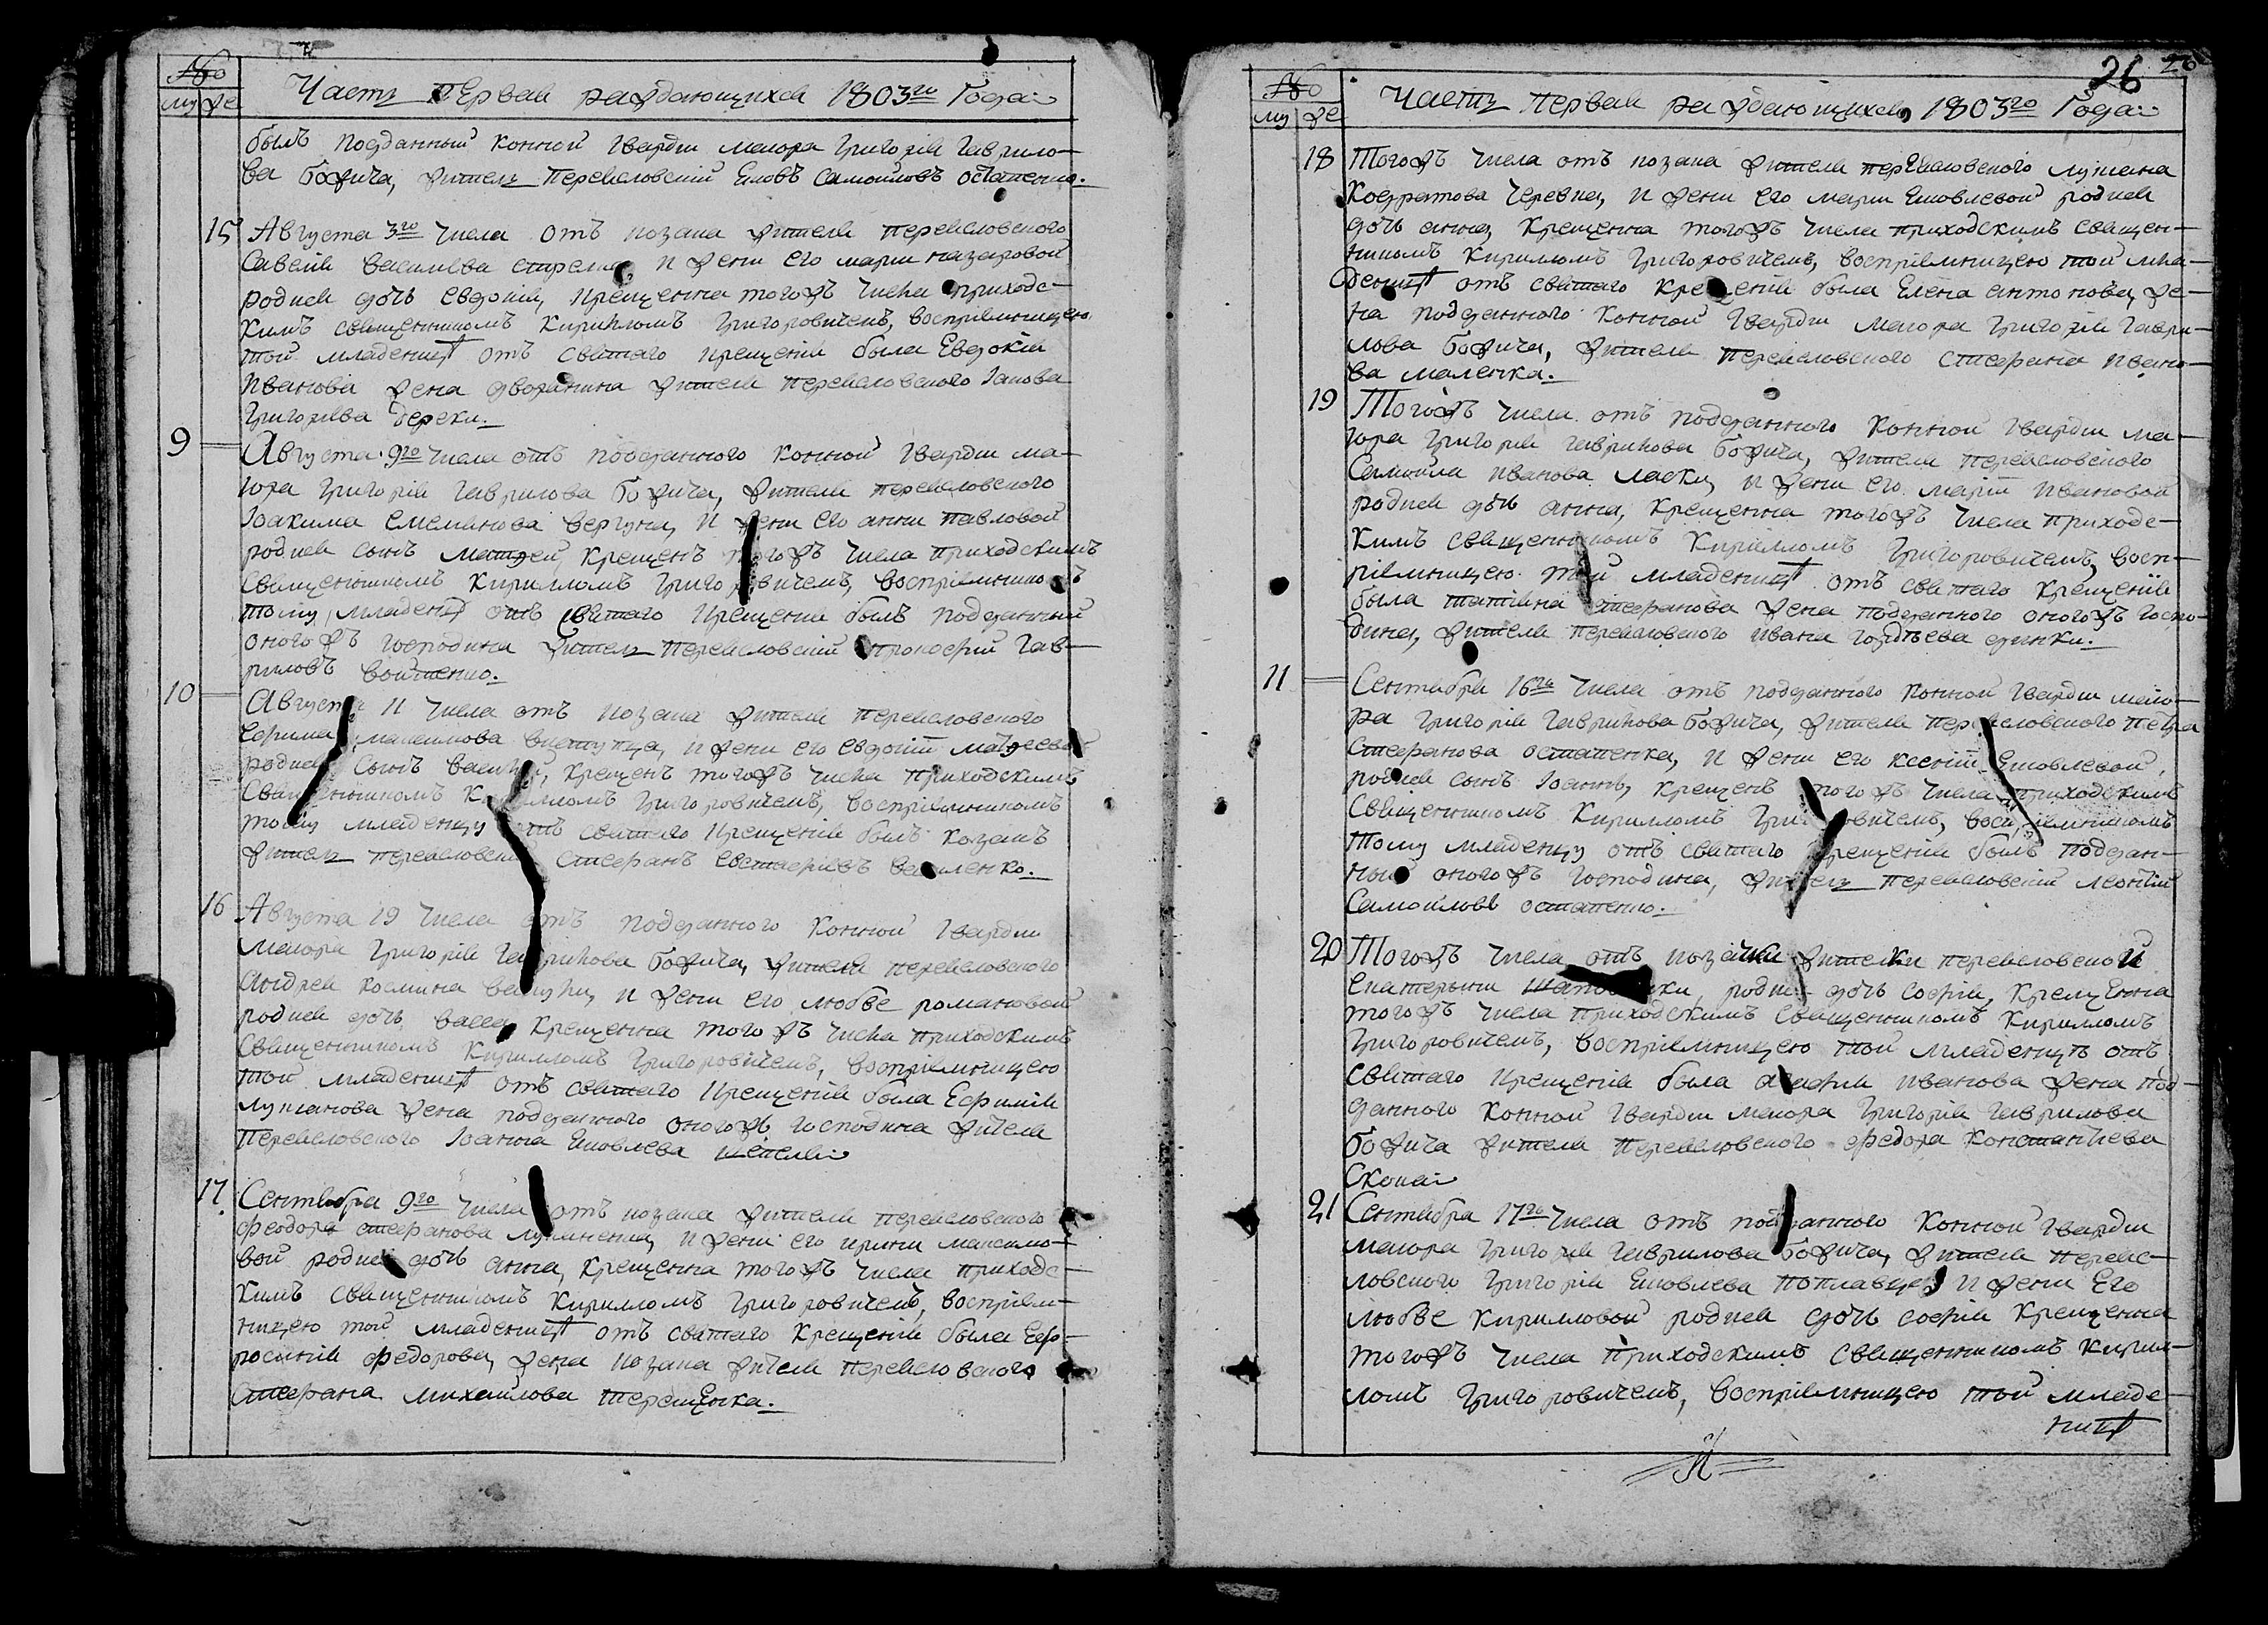 №
му же
Часть Первая раждающихся 1803го Года
былъ подданный конной гвардіи маіора григорія гаврило-
ва божича, житель перевеловскій яковъ самойловъ остапенко.
15 Августа 3го числа отъ козака жителя перевеловского
Савелія василіева и жени его маріи назаровой
родися дочь евдокія, крещенна тогожъ числа приходс-
кимъ священникомъ кирилломъ григоровичемъ, воспріемницею
той младеницѣ отъ святаго крещенія была Евдокія
Иванова жена дворянина жителя перевеловского Іакова
григоріева дереки.
9 Августа 9го числа отъ подданного конной гвардіи ма-
іора григорія гаврилова божича, жителя перевеловского
Іоакима емеліанова вергуна, и жени его анни павловой
родися сынъ матѳей, крещенъ тогожъ числа приходскимъ
священникомъ кирилломъ григоровичемъ, воспріемникомъ
тому младенцу отъ святаго крещенія былъ подданный
оногожъ господина житель перевеловскій прокофій гав-
риловъ войтенко.
10 Августа 11 числа отъ козака жителя перевеловского
Ефима максимова и жени его евдокіи матѳеево
родися сынъ василій, крещенъ тогожъ числа приходскимъ
священникомъ кирилломъ григоровичемъ, воспріемникомъ
тому младенцу отъ святаго крещенія былъ козакъ
житель перевеловскій стефанъ евстафіевъ василенко.
16 Августа 19 числа отъ подданного конной гвардіи
маіора григорія гаврилова божича, жителя перевеловского
андрея космина и жени его любве романовой
родися дочь васса, крещенна тогожъ числа приходскимъ
священникомъ кирилломъ григоровичемъ, воспріемницею
той младеницѣ отъ святаго крещенія была Ефимія
лукіанова жена подданного оногожъ господина жителя
перевеловского Іоанна яковлева шепеля
17. Сентября 9го числа отъ козака жителя перевеловского
феодора стефанова и жени его ирини максимо-
вой родися дочь анна, крещенна тогожъ числа приходс-
кимъ священникомъ кирилломъ григоровичемъ, воспріем-
ницею той младеницѣ отъ святаго крещенія была Еф-
росинія федорова, жена козака жителя перевеловского
стефана михайлова терещенка.
26
№
му же
Часть Первая раждающихся 1803го Года
18 Тогожъ числа отъ козака жителя перевеловского лукіана
кондратова черевка, и жени его маріи яковлевой родися
дочь анна, крещенна тогожъ числа приходскимъ священ-
никомъ кирилломъ григоровичемъ, воспріемницею той мла-
деницѣ отъ святаго крещенія была Елена антонова, же-
на подданного конной гвардіи маіора григорія гаври-
лова божича, жителя перевеловского стефана ивано-
ва маленка.
19 Тогожъ числа отъ подданного конной гвардіи ма-
іора григорія гаврилова божича, жителя перевеловского
Самойла иванова ласки, и жени его маріи ивановой
родися дочь анна, крещенна тогожъ числа приходс-
кимъ священникомъ кирилломъ григоровичемъ, восп-
ріемницею той младеницѣ отъ святаго крещенія
была татіана стефанова жена подданного оногожъ госпо-
дина, жителя перевеловского ивана гордѣева динки.
11 Сентября 16го числа отъ подданного конной гвардіи маіо-
ра григорія гаврилова божича, жителя перевеловского петра
стефанова остапенка, и жени его ксеніи яковлевой,
родися сынъ Іоаннъ, крещенъ тогожъ числа приходскимъ
священникомъ кирилломъ григоровичемъ, воспріемникомъ
тому младенцу отъ святаго крещенія былъ поддан-
ный оногожъ господина, житель перевеловскій леонтій
Самойловъ остапенко.
20 Тогожъ числа отъ козачки жителки перевеловской
екатерини родися дочь софія, крещенна
тогожъ числа приходскимъ священникомъ кирилломъ
григоровичемъ, воспріемницею той младеницѣ отъ
святаго крещенія была агафія иванова жена под-
данного конной гвардіи маіора григорія гаврилова
божича жителя перевеловского федора константіева
скока
21 Сентября 17го числа отъ подданного конной гвардіи
маіора григорія гаврилова божича, жителя переве-
ловского григорія яковлева поплавца, и жени его
любве кириловой родися дочь софія крещенна
тогожъ числа приходскимъ священникомъ кирил-
ломъ григоровичемъ, воспріемницею той младе-
ницѣ